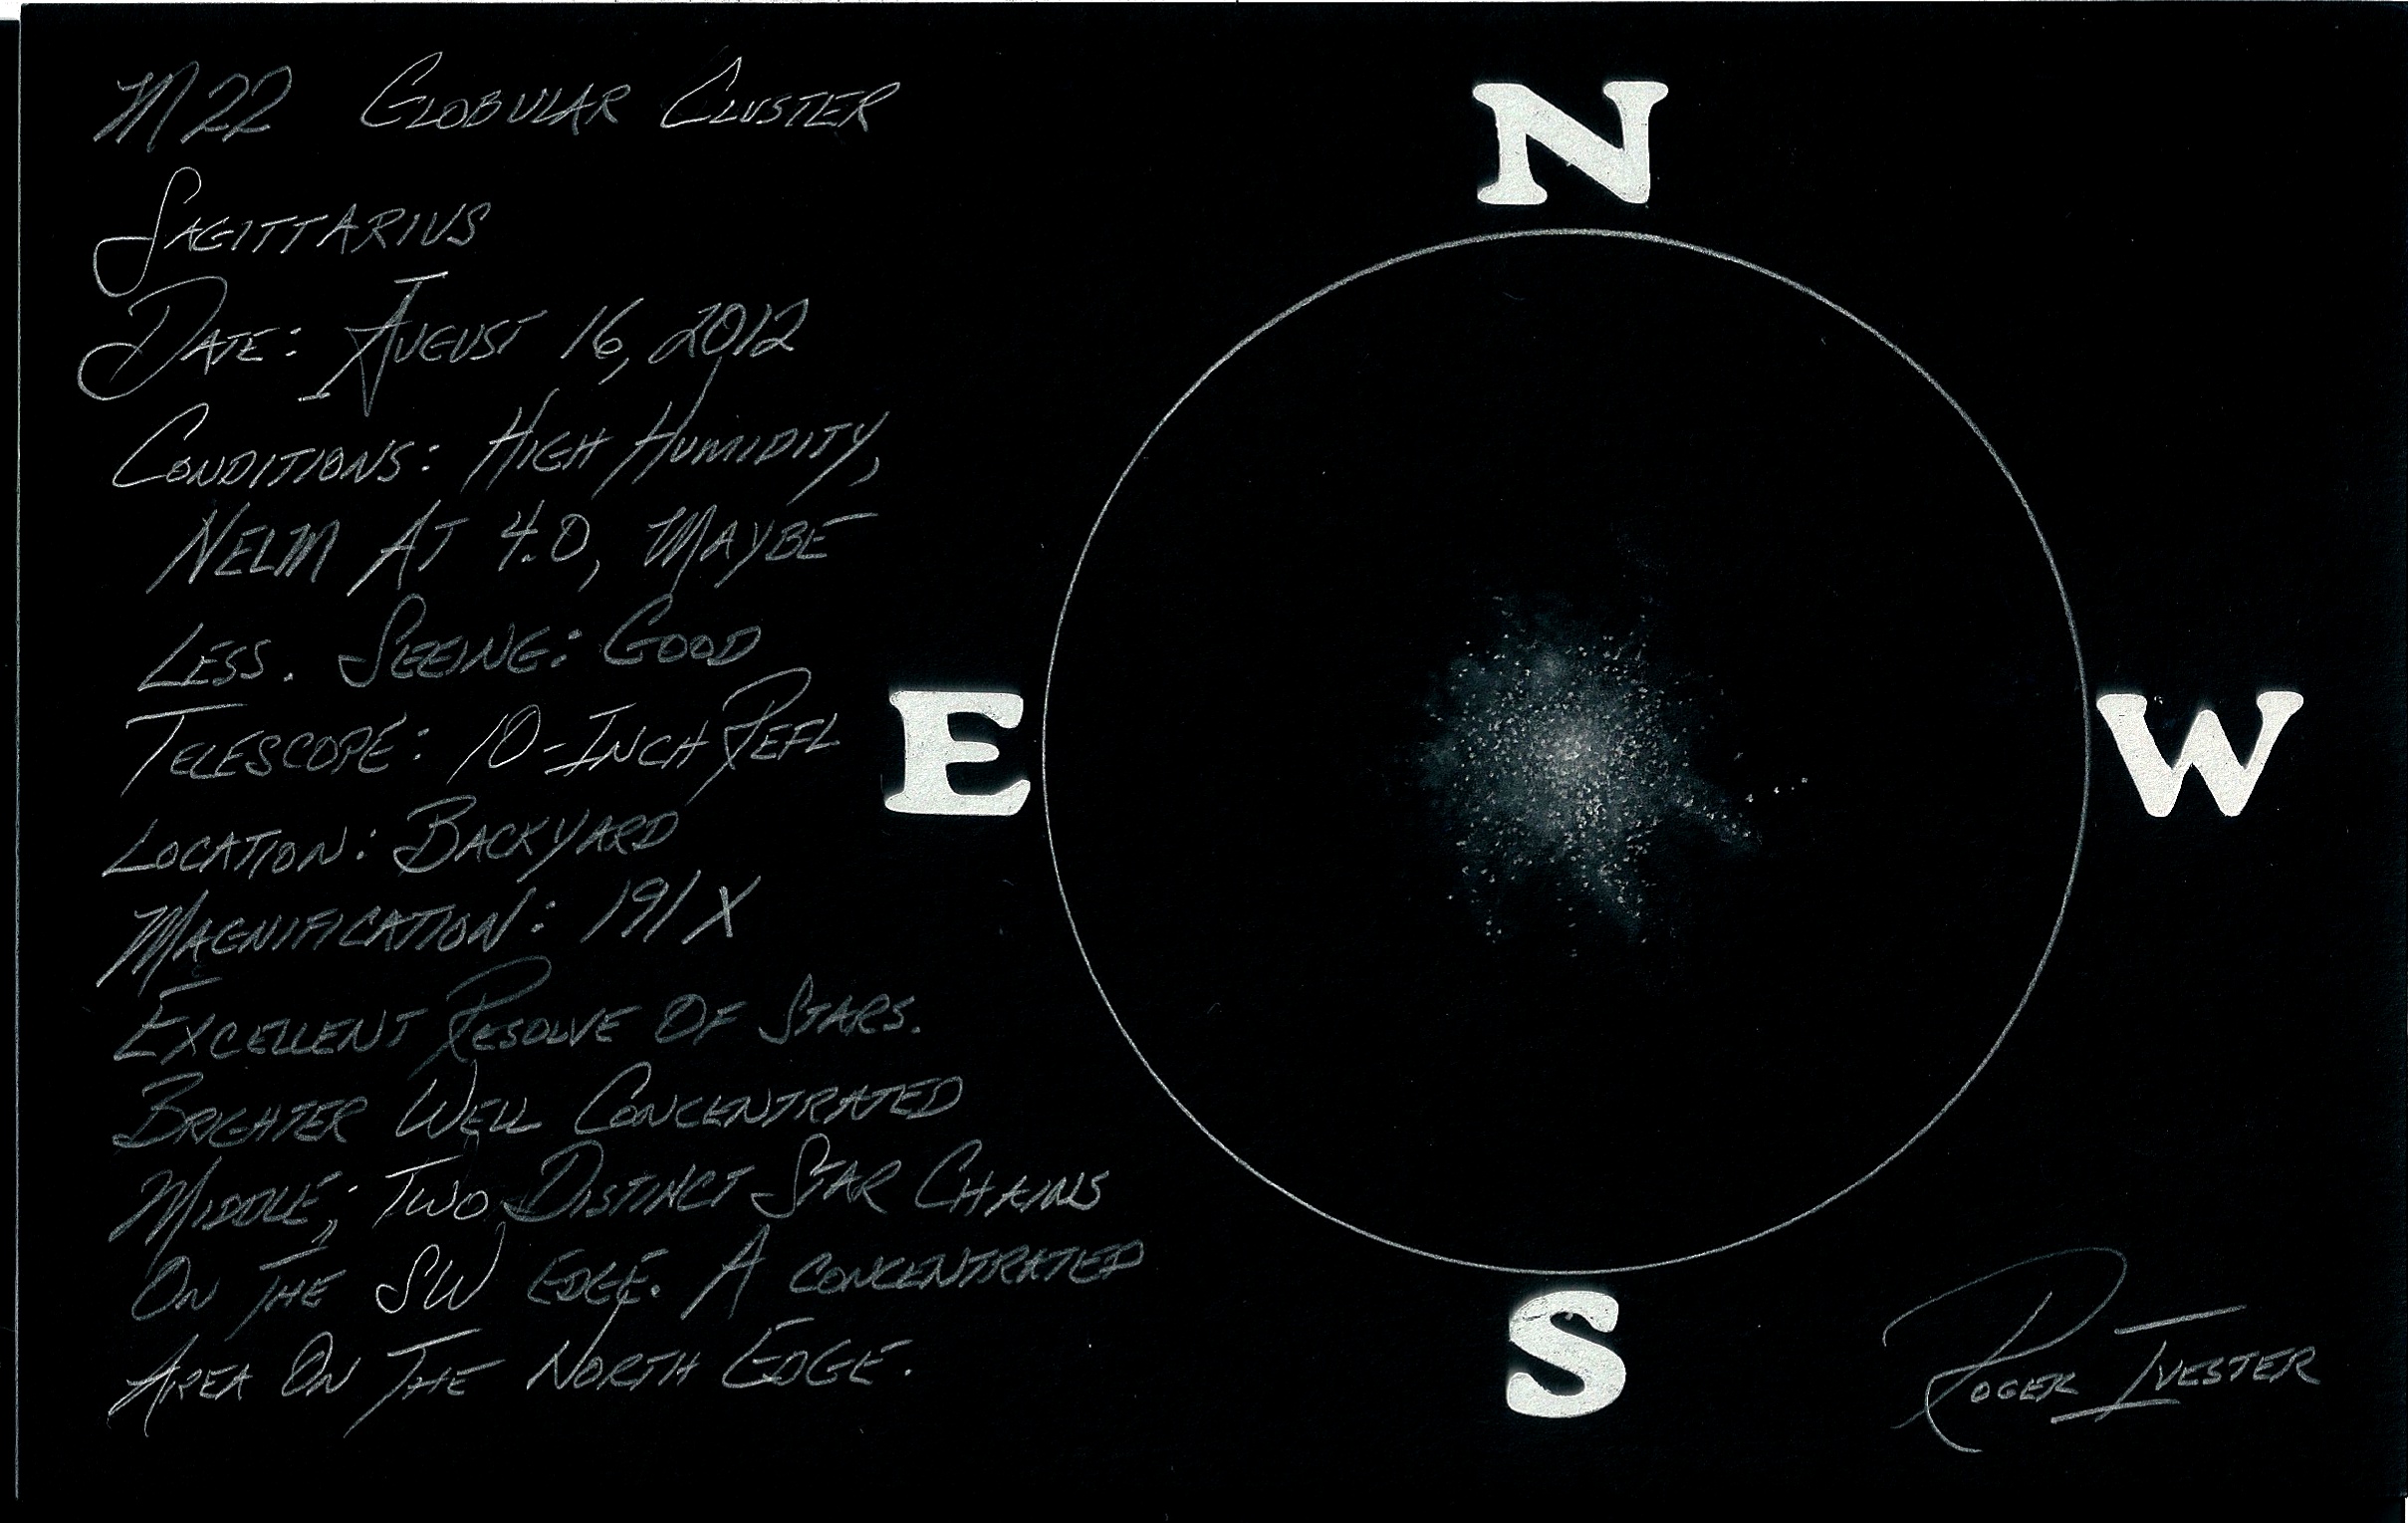 M22 Globular Cluster
Sagittarius
Date: August 16, 2012
Conditions: High Humidity,
NELM At 4.0, Maybe
Less. Seeing: Good
Telescope: 10-Inch Refl
Location: Backyard
Magnification: 191X
Excellent Resolve Of Stars.
Brighter Well Concentrated
Middle; Two Distinct Star Chains
On The SW Edge. A concentrated
Area On The North Edge.
N
E
W
S
Roger Ivester